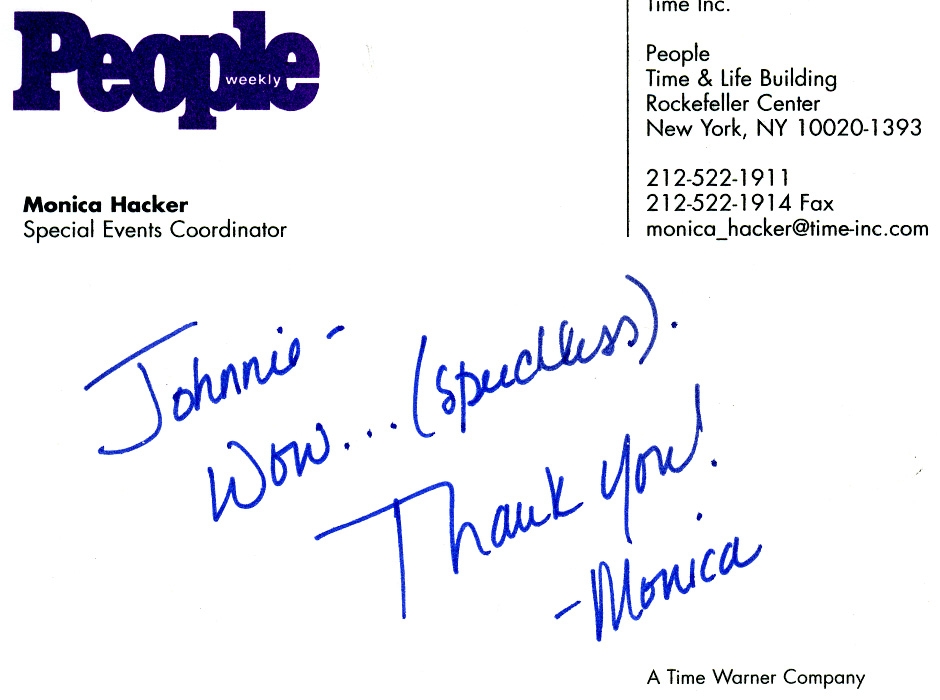 People
weekly
Monica Hacker
Special Events Coordinator
Time Inc.
People
Time & Life Building
Rockefeller Center
New York, NY 10020-1393
212-522-1911
212-522-1914 Fax
monica_hacker@time-inc.com
Johnnie -
Wow... (speechless).
Thank you!
-Monica
A Time Warner Company